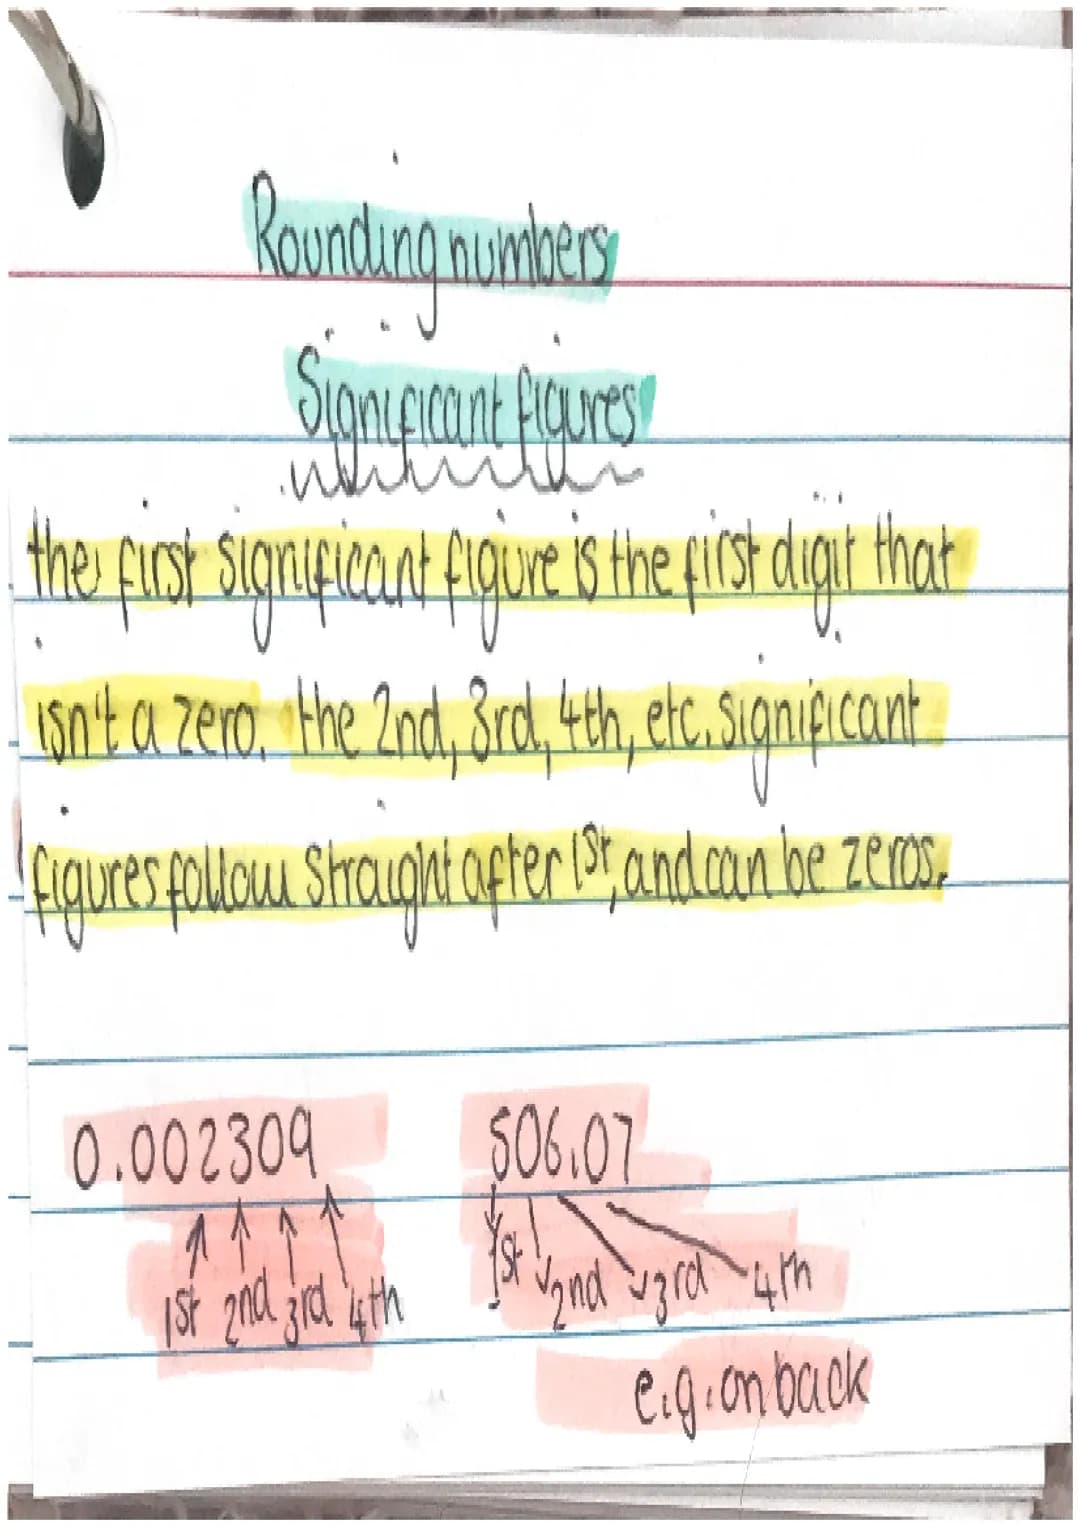 Rounding numbers
Significant figures
the first significant figure is the first digit that
isn't a zero. the 2nd, 3rd, 4th, etc. significant
figures follow straight after 1st, and can be zeros.
0.002309 506.07
1st 2nd 3rd 4th 1st 2nd 3rd 4th
e.g. on back